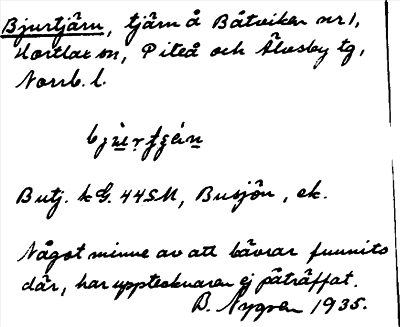 Bjurtjärn, tjärn å Båtviken nr 1,
Hortlax sn, Piteå och Älvsby tg,
Norrb. l.
Butj. kG. 44SM, Busjön, ek.
Något minne av att bävrar funnits
där, har upptecknaren ej påträffat.
B. Nygren 1935.